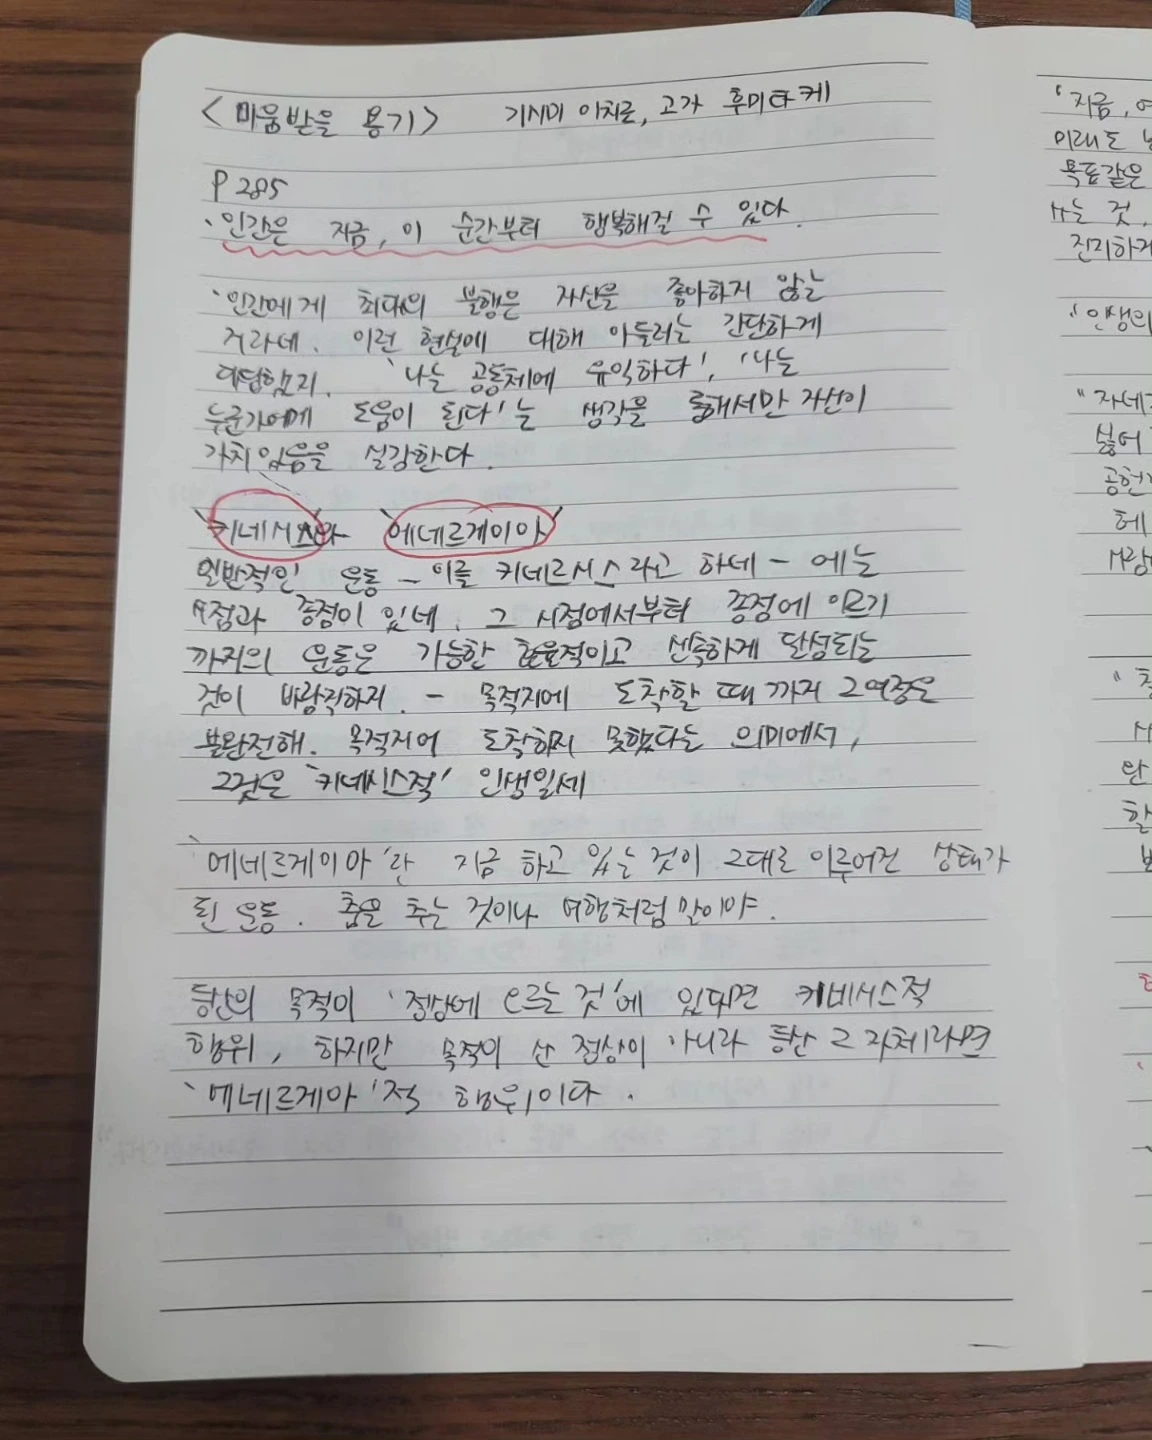 <미움받을 용기> 기시미 이치로, 고가 후미타케
P 285
· 인간은 지금, 이 순간부터 행복해질 수 있다.
'인간에게 최대의 불행은 자신을 좋아하지 않는
거라네. 이런 현실에 대해 아들러는 간단하게
대답했지. '나는 공동체에 유익하다', '나는
누군가에게 도움이 된다'는 생각을 통해서만 자신이
가치있음을 실감한다.
'키네시스'와 '에네르게이아'
일반적인 운동 - 이를 키네르시스라고 하네 - 에는
시점과 종점이 있네. 그 시점에서부터 종점에 이르기
까지의 운동은 가능한 효율적이고 신속하게 달성되는
것이 바랑직하지. - 목적지에 도착할 때 까지 그여정은
불완전해. 목적지에 도착하지 못했다는 의미에서,
그것은 '키네시스적' 인생일세
'에네르게이아'란 지금 하고 있는 것이 그대로 이루어진 상태가
된 운동. 춤을 추는 것이나 여행처럼 말이야.
등산의 목적이 '정상에 오르는 것'에 있다면 키네시스적
행위, 하지만 목적이 산 정상이 아니라 등산 그 자체라면
'에네르게아'적 행위이다.
'지금, 여
미래도
목표같은
사는 것,
진지하게
"인생의
"자네
싫어
공헌
헤
사람
안
할